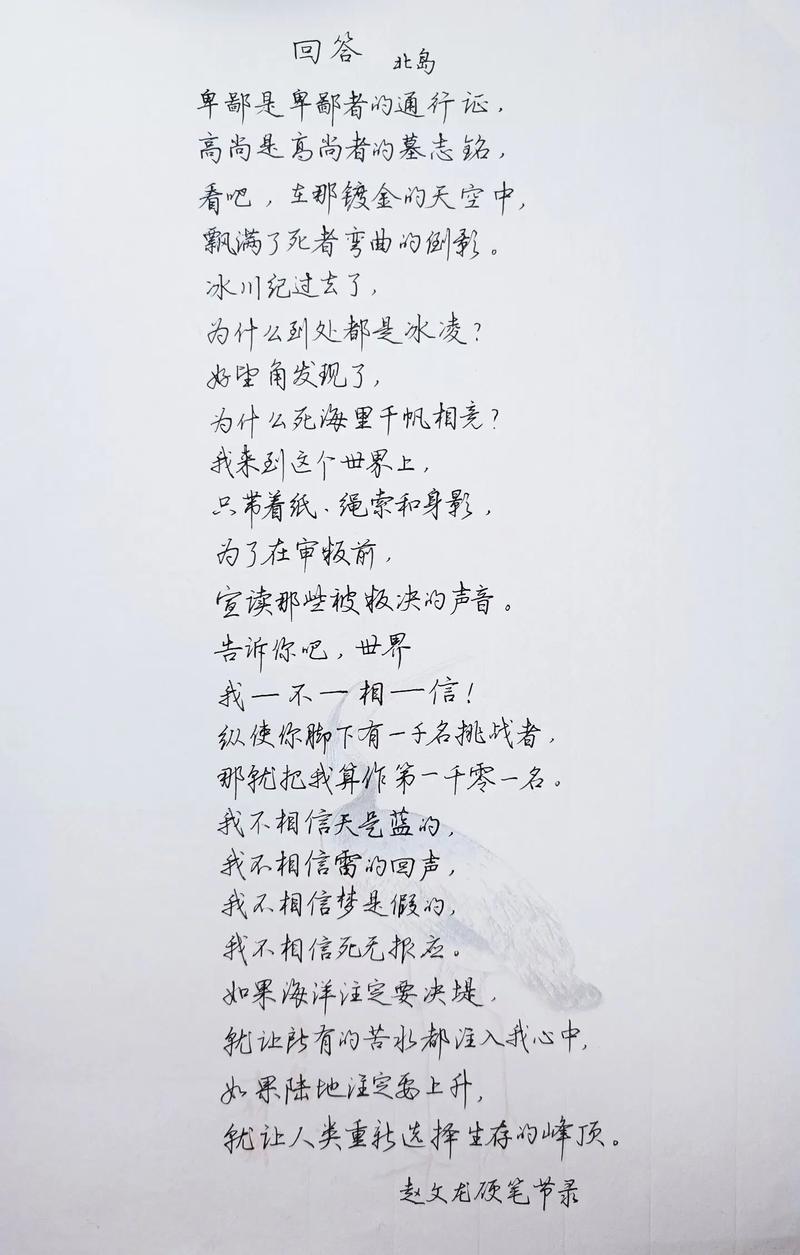 回答 北岛
卑鄙是卑鄙者的通行证，
高尚是高尚者的墓志铭，
看吧，在那镀金的天空中，
飘满了死者弯曲的倒影。
冰川纪过去了，
为什么到处都是冰凌？
好望角发现了，
为什么死海里千帆相竞？
我来到这个世界上，
只带着纸、绳索和身影，
为了在审板前，
宣读那些被板决的声音。
告诉你吧，世界
我一不一相一信！
纵使你脚下有一千名挑战者，
那就把我算作第一千零一名。
我不相信天是蓝的，
我不相信雷的回声，
我不相信梦是假的，
我不相信死无报应。
如果海洋注定要决堤，
就让所有的苦水都注入我心中，
如果陆地注定要上升，
就让人类重新选择生存的峰顶。
赵文龙硬笔节录